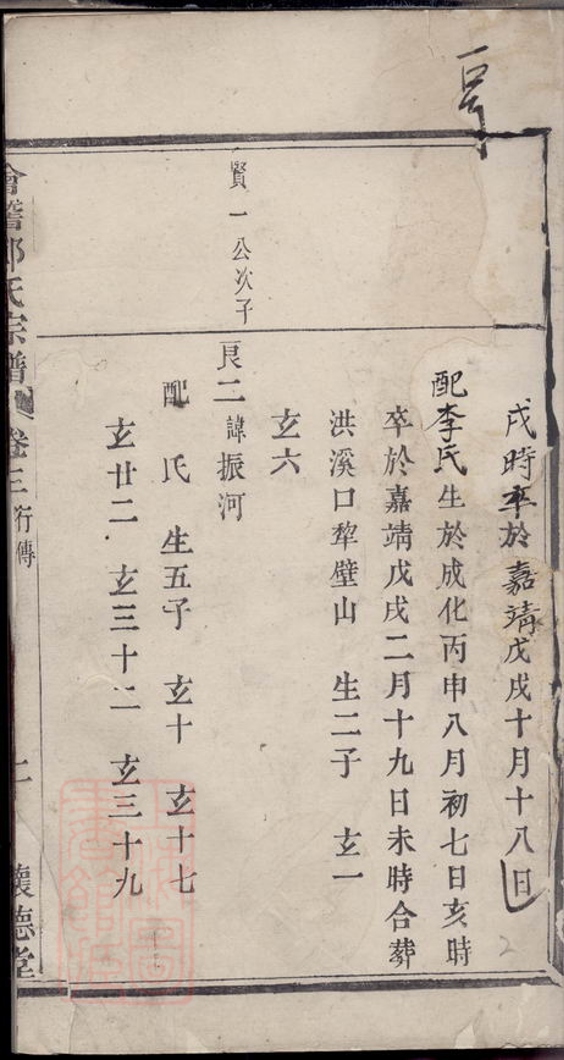 戌時卒於嘉靖戊戌十月十八日
配李氏生於成化丙申八月初七日亥時
卒於嘉靖戊戌二月十九日未時合葬
洪溪口犂壁山 生二子 玄一
玄六
賢一公次子
良二 諱振河
配 氏 生五子 玄十 玄十七
玄廿二 玄三十二 玄三十九
會稽 氏宗譜 卷三 行傳 二 懷德堂
2